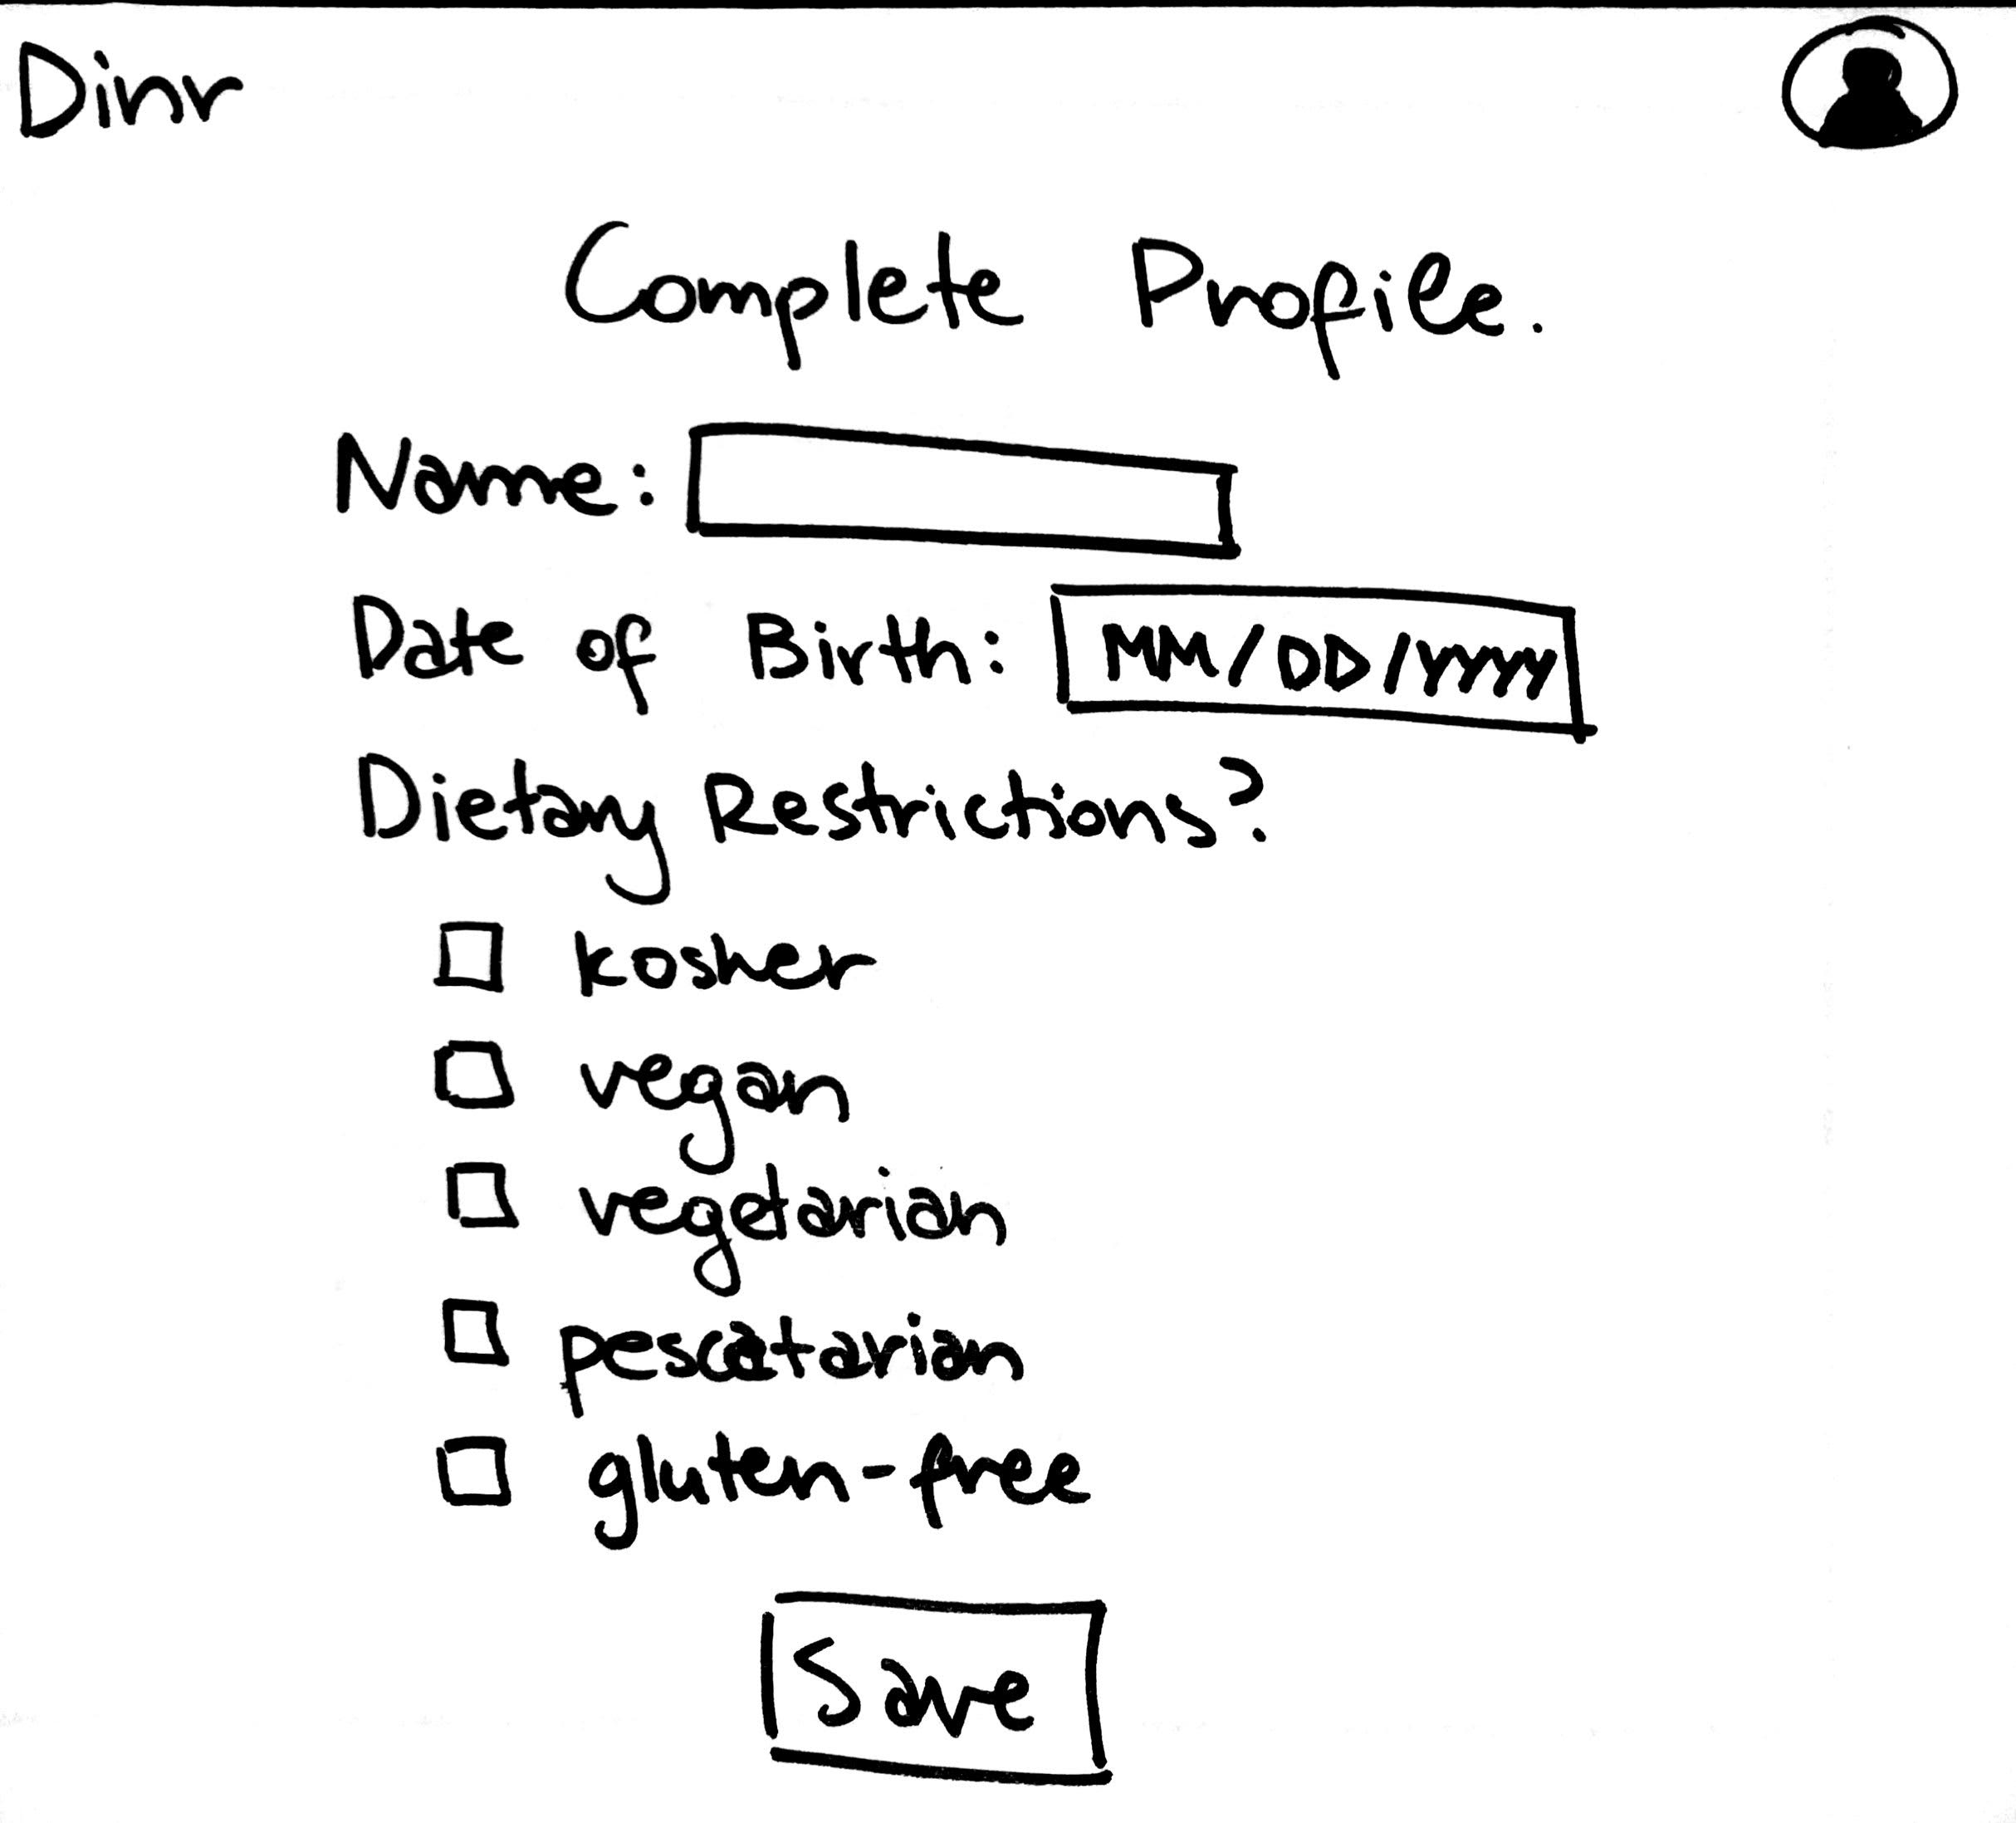 Dinr
Complete Profile.
Name:
Date of Birth: MM/DD/YYYY
Dietary Restrictions?
kosher
vegan
vegetarian
pescatarian
gluten-free
Save